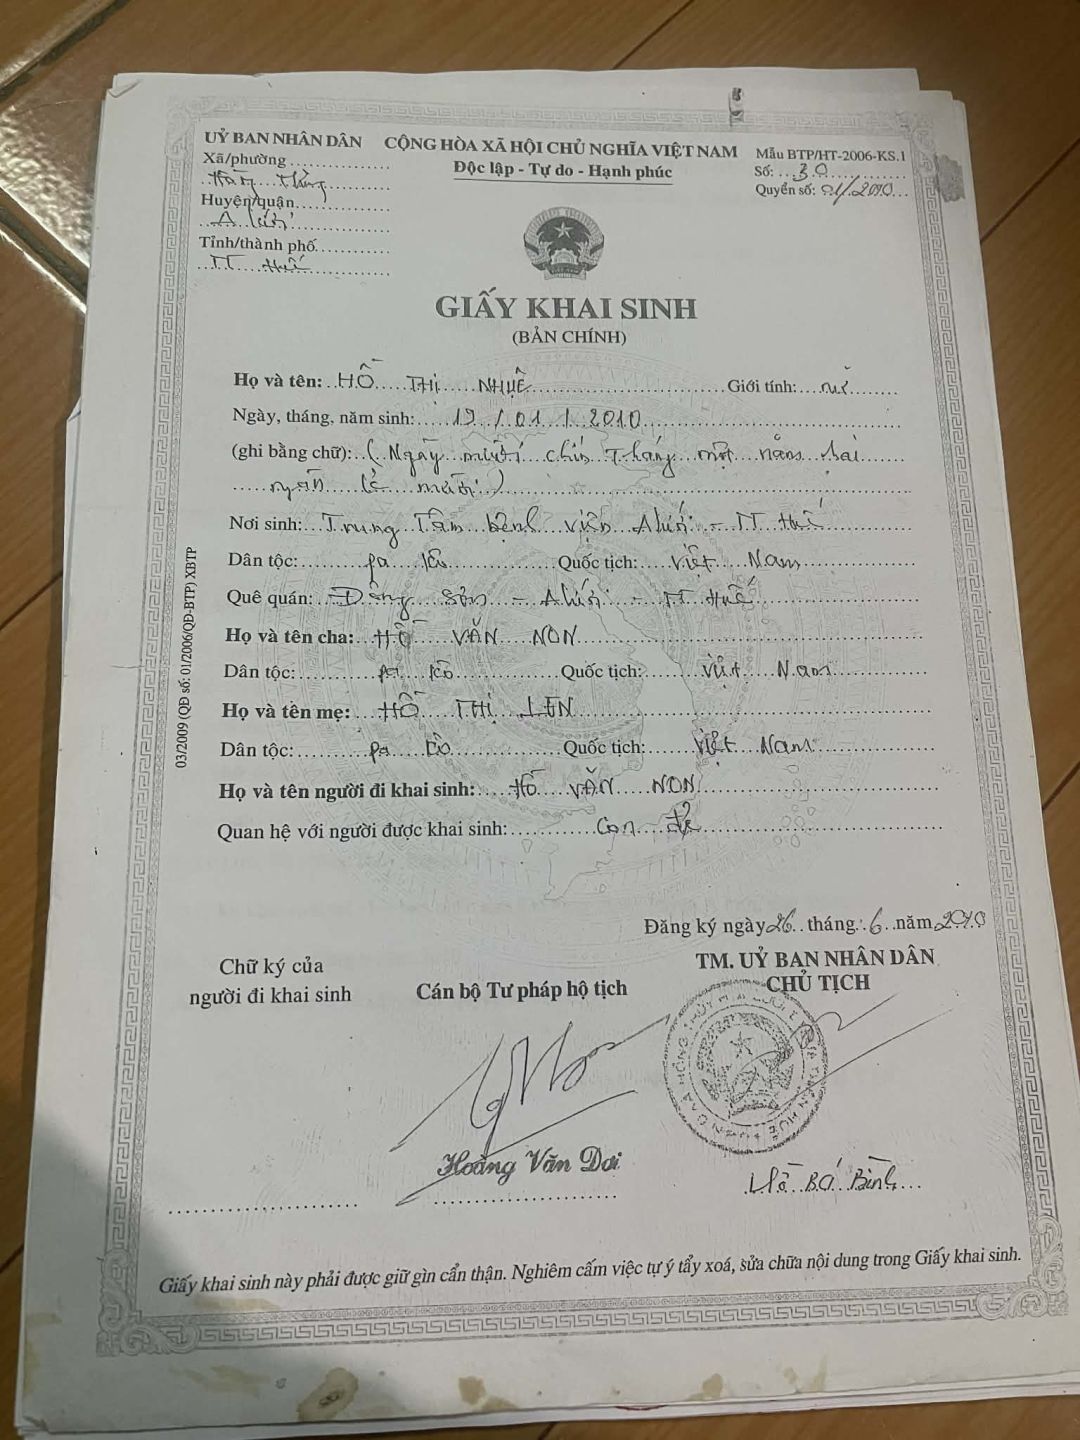 UỶ BAN NHÂN DÂN
Xã/phường
Hồng Thủy
Huyện/quận
A Lưới
Tỉnh/thành phố
TT Huế
CỘNG HÒA XÃ HỘI CHỦ NGHĨA VIỆT NAM
Độc lập - Tự do - Hạnh phúc
Mẫu BTP/HT-2006-KS.1
Số: 30
Quyển số: 01/2010
GIẤY KHAI SINH
(BẢN CHÍNH)
Họ và tên: HỒ THỊ NHUỆ Giới tính: nữ
Ngày, tháng, năm sinh: 19 / 01 / 2010
(ghi bằng chữ): (Ngày mười chín tháng một năm hai
ngàn lẻ mười)
Nơi sinh: Trung Tâm bệnh viện A lưới - TT Huế
Dân tộc: pa kô Quốc tịch: Việt Nam
Quê quán: Đông Sơn - A lưới - TT Huế
Họ và tên cha: HỒ VĂN NON
Dân tộc: pa kô Quốc tịch: Việt Nam
Họ và tên mẹ: HỒ THỊ LEN
Dân tộc: pa kô Quốc tịch: Việt Nam
Họ và tên người đi khai sinh: HỒ VĂN NON
Quan hệ với người được khai sinh: Con đẻ
03/2009 (QĐ số: 01/2006/QĐ-BTP) XBTP
Đăng ký ngày 26 tháng: 6 năm 2010
Chữ ký của
người đi khai sinh
Cán bộ Tư pháp hộ tịch
TM. UỶ BAN NHÂN DÂN
CHỦ TỊCH
Hoàng Văn Dơi
Hồ Bá Bình
Giấy khai sinh này phải được giữ gìn cẩn thận. Nghiêm cấm việc tự ý tẩy xoá, sửa chữa nội dung trong Giấy khai sinh.